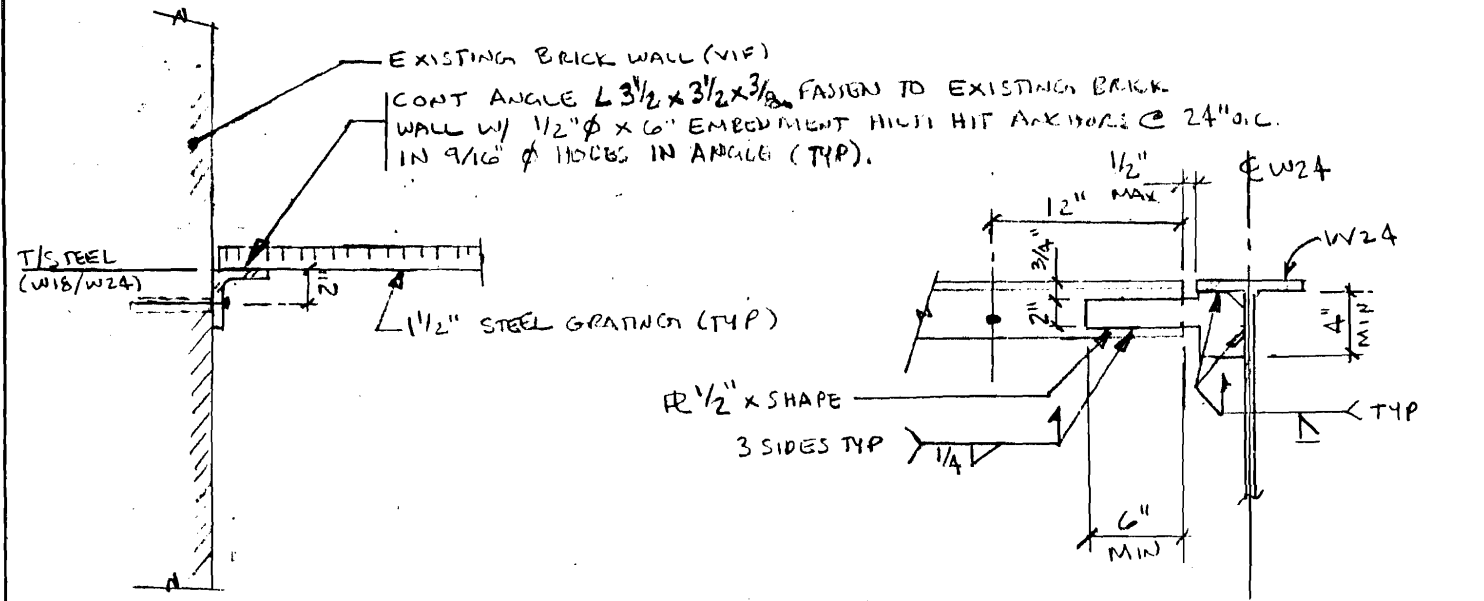 EXISTING BRICK WALL (VIF)
CONT ANGLE L 3 1/2 x 3 1/2 x 3/8 FASTEN TO EXISTING BRICK
WALL W/ 1/2"Ø x 6" EMBEDMENT HILTI HIT ANCHORS @ 24" O.C.
IN 9/16" Ø HOLES IN ANGLE (TYP).
T/STEEL
(W18/W24)
2"
1 1/2" STEEL GRATING (TYP)
1/2"
MAX
℄ W24
12"
W24
3/4"
2"
4"
MIN
PL 1/2" x SHAPE
3 SIDES TYP
1/4
TYP
6"
MIN